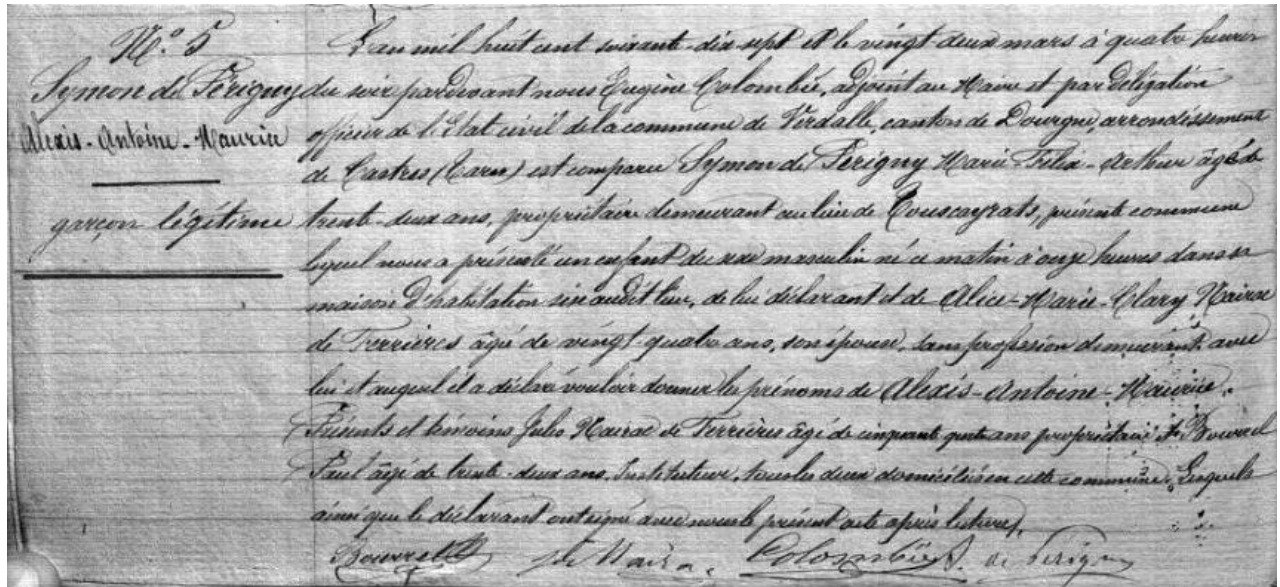 N.° 5
Symon de Périgny
Alexis-Antoine-Maurice
garçon légitime
L'an mil huit cent soixante-dix-sept et le vingt-deux mars à quatre heures
du soir pardevant nous Eugène Colombié, adjoint au Maire et par délégation
officier de l'État civil de la commune de Verdalle, canton de Dourgne, arrondissement
de Castres (Tarn) est comparu Symon de Périgny Marie Félix-Arthur âgé de
trente-deux ans, propriétaire demeurant au lieu de Couscayrats, présente commune
lequel nous a présenté un enfant du sexe masculin né ce matin à onze heures dans sa
maison d'habitation sise audit lieu, de lui déclarant et de Alice-Marie-Clary Nairac
de Ferrières âgée de vingt-quatre ans, son épouse, sans profession demeurant avec
lui et auquel il a déclaré vouloir donner les prénoms de Alexis-Antoine-Maurice.
Présents et témoins Jules Nairac de Ferrières âgé de cinquante ans propriétaire et Bourrel
Paul âgé de trente-deux ans, Instituteur, tous les deux domiciliés en cette commune. Lesquels
ainsi que le déclarant ont signé avec nous le présent acte après lecture.
Bourrel Colombié A. de Périgny